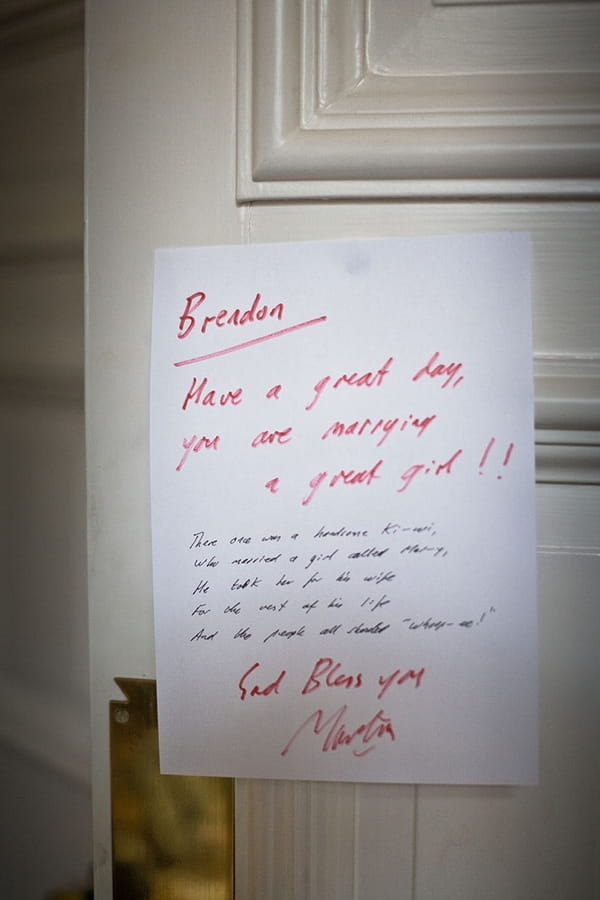 Brendon
Have a great day,
you are marrying
a great girl!!
There once was a handsome Ki-wi,
Who married a girl called Mar-y,
He took her for his wife
For the rest of his life
And the people all shouted "whoop-ee!"
God Bless you